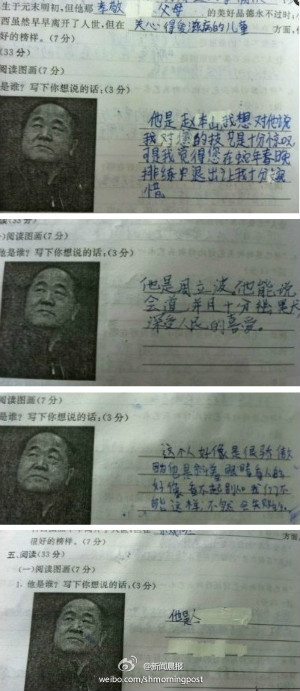 生于元末明初,但他那 孝敬 父母 的美好品德永不过时;
西虽然早早离开了人世,但在 关心得爱滋病的儿童 方面,
好的榜样。(7分)
(33分)
阅读图画(7分)
是谁?写下你想说的话:(3分)
他是赵本山我想对他说
我对您的技艺十分惊叹
可是我觉得您在蛇年春晚
排练中退出让我十分惋
惜。
)阅读图画(7分)
是谁?写下你想说的话:(3分)
他是周立波,他能说
会道 并且十分幽默
深受人民的喜爱。
阅读图画(7分)
是谁?写下你想说的话:(3分)
这个人好像是很骄傲
眼睛看人
好像看不起别人 我们不
能这样,不然
很好的榜样。(7分)
五、阅读(33分)
(一)阅读图画(7分)
1. 他是谁?写下你想说的话:(3分)
他是
@新闻晨报
weibo.com/shmorningpost